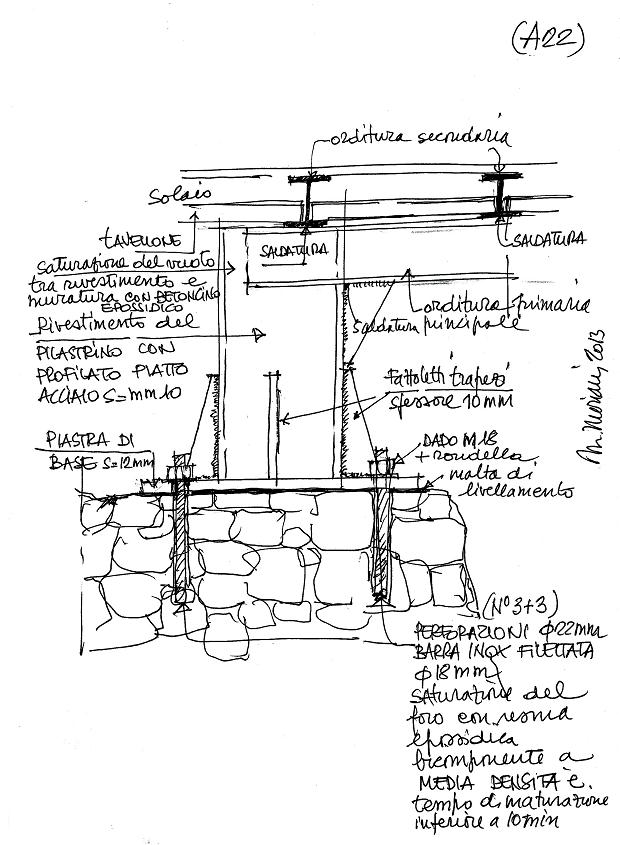 (A22)
orditura secondaria
Solaio
TAVELLONE
SALDATURA
SALDATURA
saturazione del vuoto
tra rivestimento e
muratura con BETONCINO
EPOSSIDICO
orditura primaria
Saldatura principale
Rivestimento del
PILASTRINO CON
PROFILATO PIATTO
ACCIAIO S=mm 10
Fazzoletti trapezi
spessore 10 mm
2013
PIASTRA DI
BASE S=12mm
DADO M18
+ rondella
malta di
livellamento
(N° 3+3)
PERFORAZIONI φ22mm
BARRA INOX FILETTATA
φ18mm
saturazione del
foro con resina
epossidica
bicomponente a
MEDIA DENSITA' e
tempo di maturazione
inferiore a 10 min